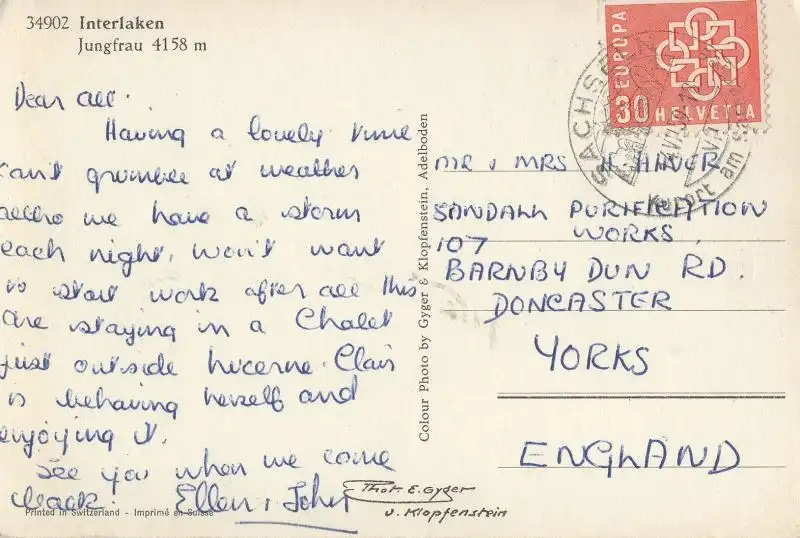 34902 Interlaken
Jungfrau 4158 m
Dear all.
Having a lovely time
can't grumble at weather
altho we have a storm
each night. Won't want
to start work after all this
are staying in a Chalet
just outside Lucerne. Clair
is behaving herself and
enjoying it.
See you when we come
back. Ellen & John
Printed in Switzerland - Imprimé en Suisse
Colour Photo by Gyger & Klopfenstein, Adelboden
Phot. E. Gyger
u. Klopfenstein
EUROPA
30 HELVETIA
SACHSELN
Kurort am
MR & MRS H.
SANDALL PURIFICATION
WORKS.
107
BARNBY DUN RD.
DONCASTER
YORKS
ENGLAND